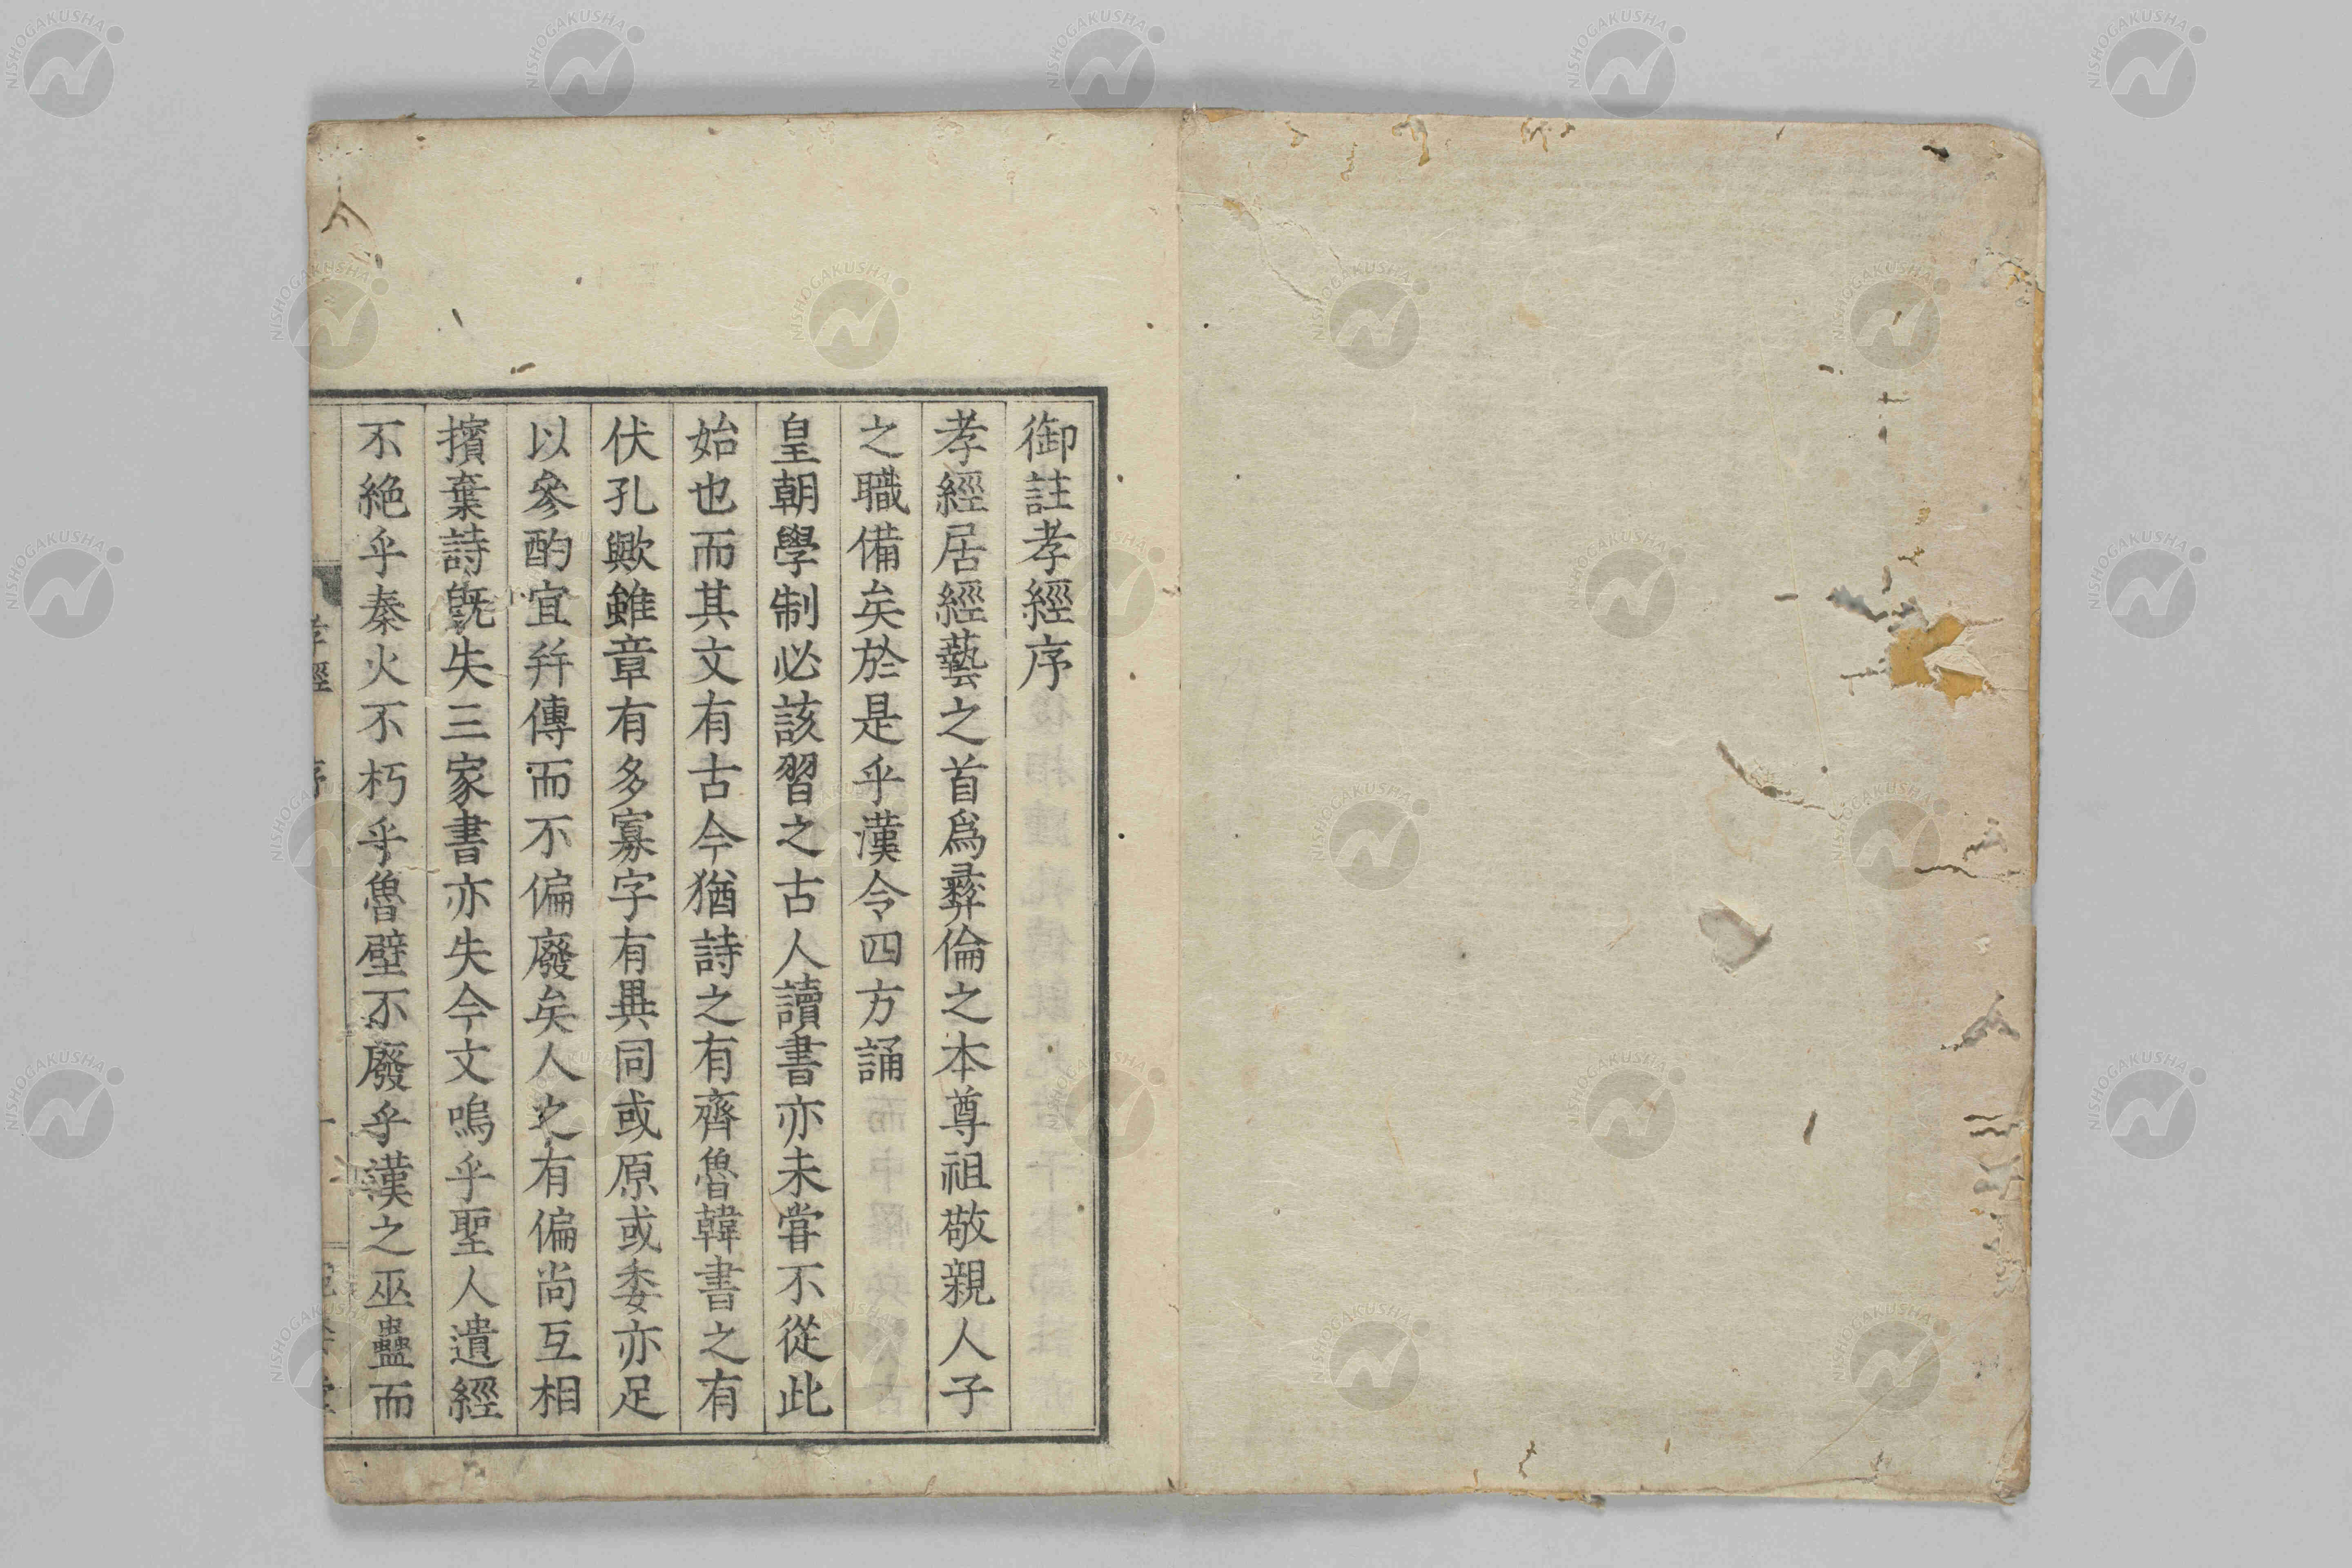 御註孝經序
孝經居經藝之首爲彛倫之本尊祖敬親人子
之職備矣於是乎漢令四方誦
皇朝學制必該習之古人讀書亦未甞不從此
始也而其文有古今猶詩之有齊魯韓書之有
伏孔歟雖章有多寡字有異同或原或委亦足
以參酌宜幷傳而不偏廢矣人之有偏尚互相
擯棄詩旣失三家書亦失今文嗚乎聖人遺經
不絶乎秦火不朽乎魯壁不廢乎漢之巫蠱而
孝經 序
NISHOGAKUSHA